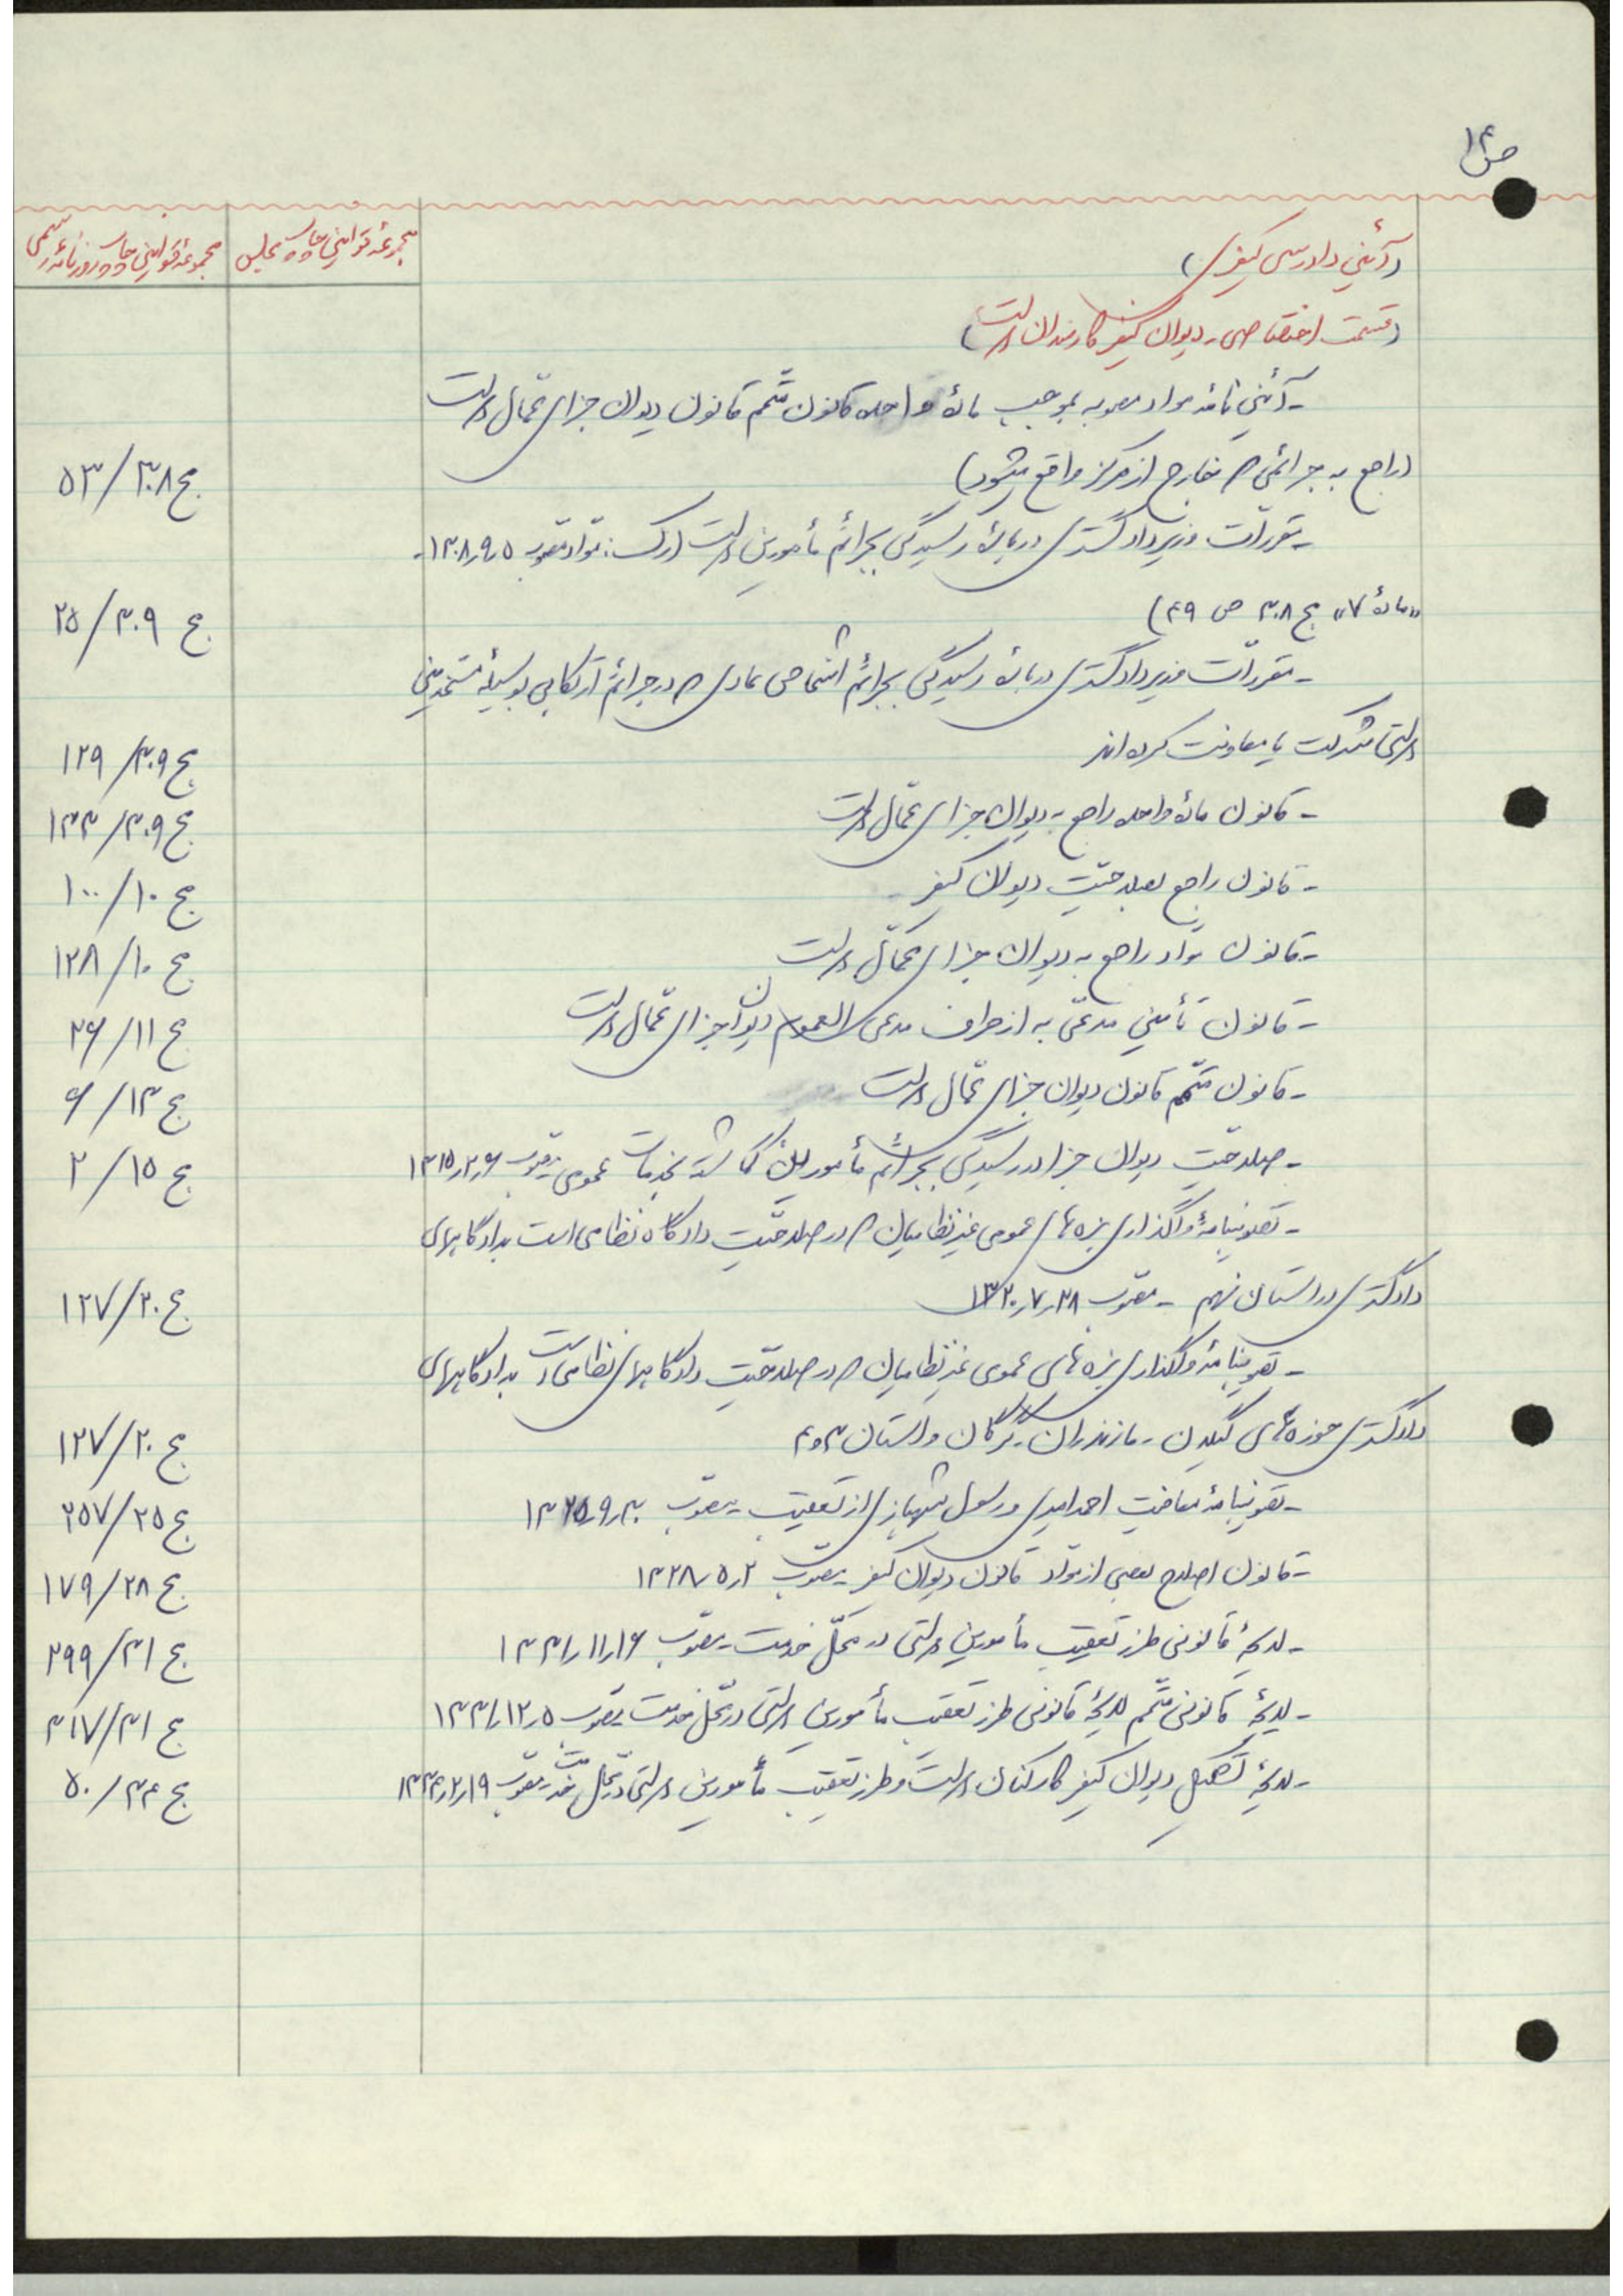 ص ۱۴
مجموعه قوانین چاپ مجلس
مجموعه قوانین چاپ روزنامه رسمی
(آئین دادرسی کیفری)
(قسمت اختصاصی - دیوان کیفر کارمندان دولت)
- آئین نامه مواد مصوبه بموجب مادهٔ واحده قانون متمّم قانون دیوان جزای عمّال دولت
(راجع به جرائمی که بخارج از مرکز واقع میشود) ج ۳۰۸/ ۵۳
- مقررّات وزیر دادگستری دربارهٔ رسیدگی بجرائم مأمورین دولت (رک: موّاد مصوب ۱۳۰۸٫۹٫۵ -
«مادهٔ ۷» ج ۳۰۸ ص ۴۹) ج ۳۰۹/ ۲۵
- مقررّات وزیر دادگستری دربارهٔ رسیدگی بجرائم اشخاص عادی که در جرائم ارتکابی بوسیلهٔ مستخدمین
دولتی شرکت یا معاونت کرده اند ج ۳۰۹/ ۱۲۹
- قانون مادهٔ واحده راجع به دیوان جزای عمّال دولت ج ۳۰۹/ ۱۳۳
- قانون راجع بصلاحیّت دیوان کیفر ج ۱۰/ ۱۰۰
- قانون موّاد راجع به دیوان جزای عمّال دولت ج ۱۰/ ۱۲۸
- قانون تأمین مدعّی به از طرف مدعی العموم دیوان جزای عمّال دولت ج ۱۱/ ۲۶
- قانون متمّم قانون دیوان جزای عمّال دولت ج ۱۳/ ۶
- صلاحیّت دیوان جزا در رسیدگی بجرائم مأمورین گماشته بخدمات عمومی - مصوّب ۱۳۱۵٫۲٫۶ ج ۱۵/ ۲
- تصویبنامهٔ واگذاری بزه های عمومی غیرنظامیان که در صلاحیّت دادگاه نظامی است بدادگاههای
دادگستری در استان نهم - مصوّب ۱۳۲۰٫۷٫۲۸ ج ۲۰/ ۱۲۷
- تصویبنامهٔ واگذاری بزه های عمومی غیرنظامیان که در صلاحیّت دادگاههای نظامی است بدادگاههای
دادگستری حوزه های گیلان - مازندران - گرگان و استان ۳ و ۴ ج ۲۰/ ۱۲۷
- تصویبنامهٔ معافیت احمد امیدی و رسول شهبازی از تعقیب - مصوّب ۱۳۲۵٫۹٫۳۰ ج ۲۵/ ۲۵۷
- قانون اصلاح بعضی از موّاد قانون دیوان کیفر - مصوّب ۱۳۲۸٫۵٫۲ ج ۲۸/ ۱۷۹
- لایحهٔ قانونی طرز تعقیب مأمورین دولتی در محلّ خدمت - مصوّب ۱۳۳۱٫۱۱٫۱۶ ج ۳۱/ ۲۹۹
- لایحهٔ قانونی متمّم لایحهٔ قانونی طرز تعقیب مأمورین دولتی در محلّ خدمت مصوّب ۱۳۳۱٫۱۲٫۵ ج ۳۱/ ۳۱۷
- لایحهٔ تشکیل دیوان کیفر کارکنان دولت و طرز تعقیب مأمورین دولتی در محلّ خدمت - مصوّب ۱۳۳۴٫۲٫۱۹ ج ۳۴/ ۵۰